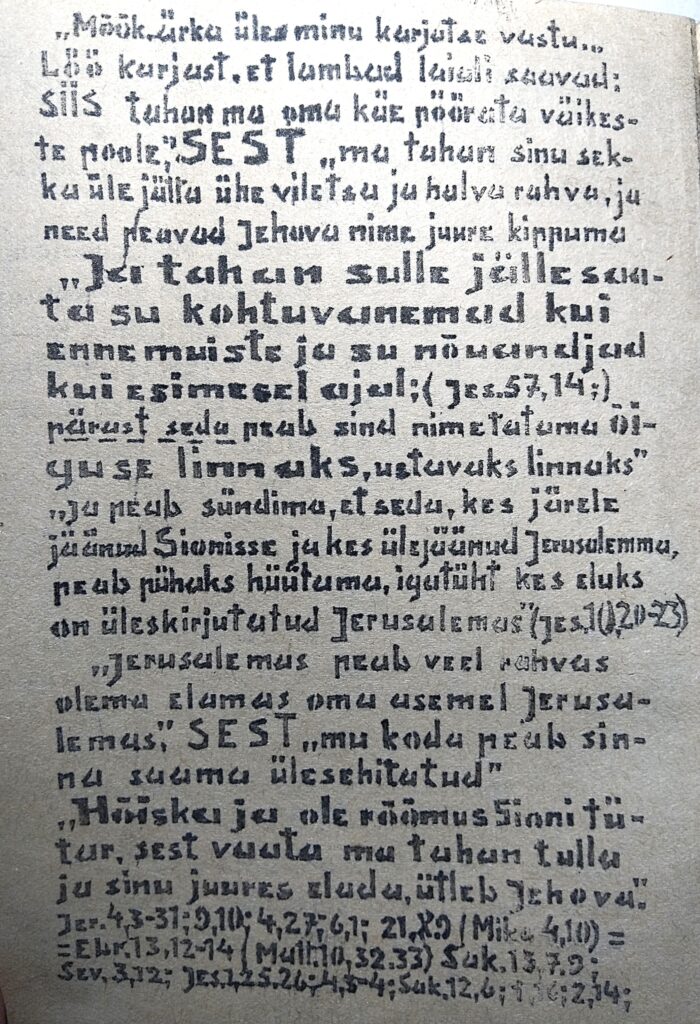 „Mõõk, ärka üles minu karjatse vastu...
Löö karjast, et lambad laiali saavad;
SIIS tahan ma oma käe pöörata väikes-
te poole", SEST „ma tahan sinu sek-
ka üle jätta ühe viletsa ja halva rahva, ja
need peavad Jehova nime juure kippuma
„Ja tahan sulle jälle saa-
ta su kohtuvanemad kui
ennemuiste ja su nõuandjad
kui esimesel ajal; (Jes. 57,14;)
pärast seda peab sind nimetatama Õi-
guse linnaks, ustavaks linnaks"
„Ja peab sündima, et seda, kes järele
jäänud Sionisse ja kes ülejäänud Jerusalemma,
peab pühaks hüütama, igaüht kes eluks
on üleskirjutatud Jerusalemas" (Jes. 10,20-23)
„Jerusalemas peab veel rahvas
olema elamas oma asemel Jerusa-
lemas", SEST „mu koda peab sin-
na saama ülesehitatud"
„Hõiska ja ole rõõmus Sioni tü-
tar, sest vaata ma tahan tulla
ja sinu juures elada, ütleb Jehova".
Jer. 4,3-31; 9,10; 4,27; 6,1; 21, 8.9 (Mika 4,10) =
= Ebr. 13,12-14 (Matt. 10,32.33) Sak. 13,7.9;
Sev. 3,12; Jes. 1,25.26; 4,3-4; Sak. 12,6; 1,16; 2,14;